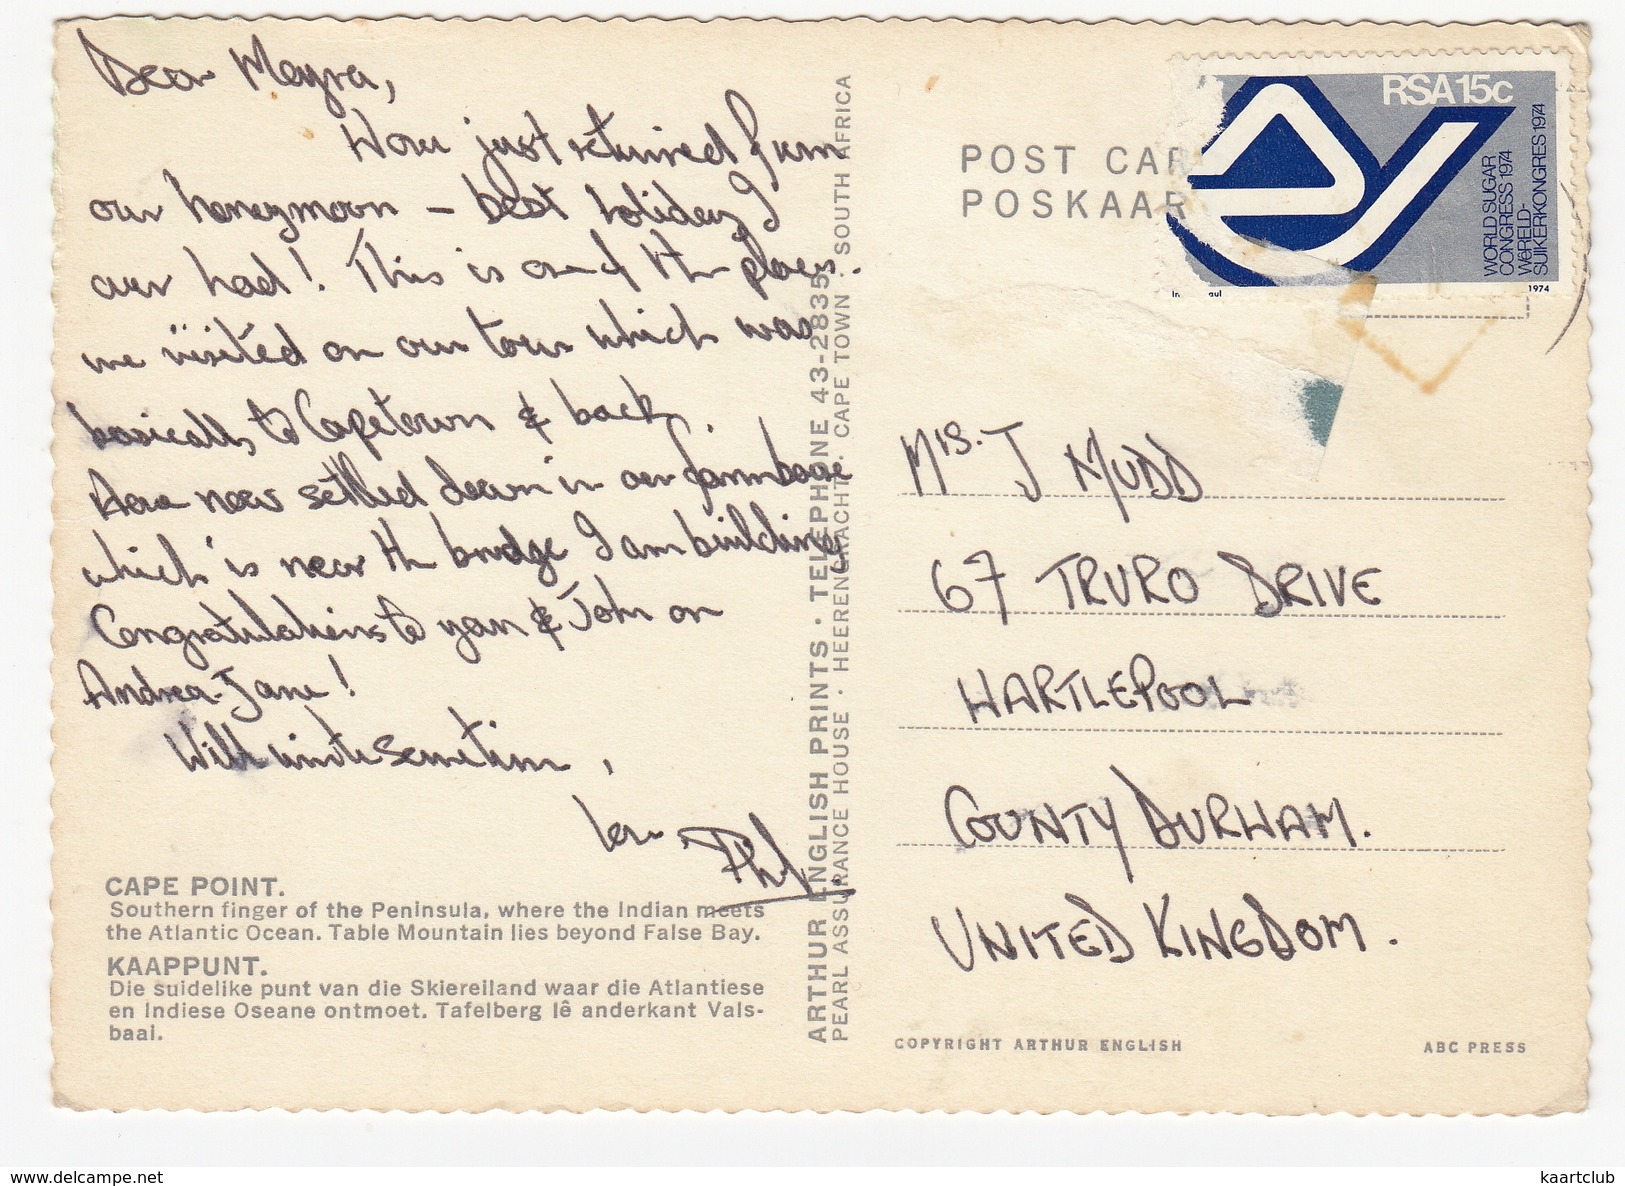 Dear Mayra,
Have just returned from
our honeymoon – best holiday I
ever had! This is one of the places
we visited on our tour which was
basically to Capetown & back.
Have now settled down in our
which is near the bridge I am building
Congratulations to you & John on
Andrea-Jane!
Will write sometime,
love
Phil.
CAPE POINT.
Southern finger of the Peninsula, where the Indian meets
the Atlantic Ocean. Table Mountain lies beyond False Bay.
KAAPPUNT.
Die suidelike punt van die Skiereiland waar die Atlantiese
en Indiese Oseane ontmoet. Tafelberg lê anderkant Vals-
baai.
ARTHUR ENGLISH PRINTS · TELEPHONE 43-2835
PEARL ASSURANCE HOUSE · HEERENGRACHT · CAPE TOWN · SOUTH AFRICA
POST CAR
POSKAAR
RSA 15c
WORLD SUGAR
CONGRESS 1974
WêRELD-
SUIKERKONGRES 1974
1974
Mrs. J MUDD
67 TRURO DRIVE
HARTLEPOOL
COUNTY DURHAM.
UNITED KINGDOM.
COPYRIGHT ARTHUR ENGLISH
ABC PRESS
www.delcampe.net
kaartclub